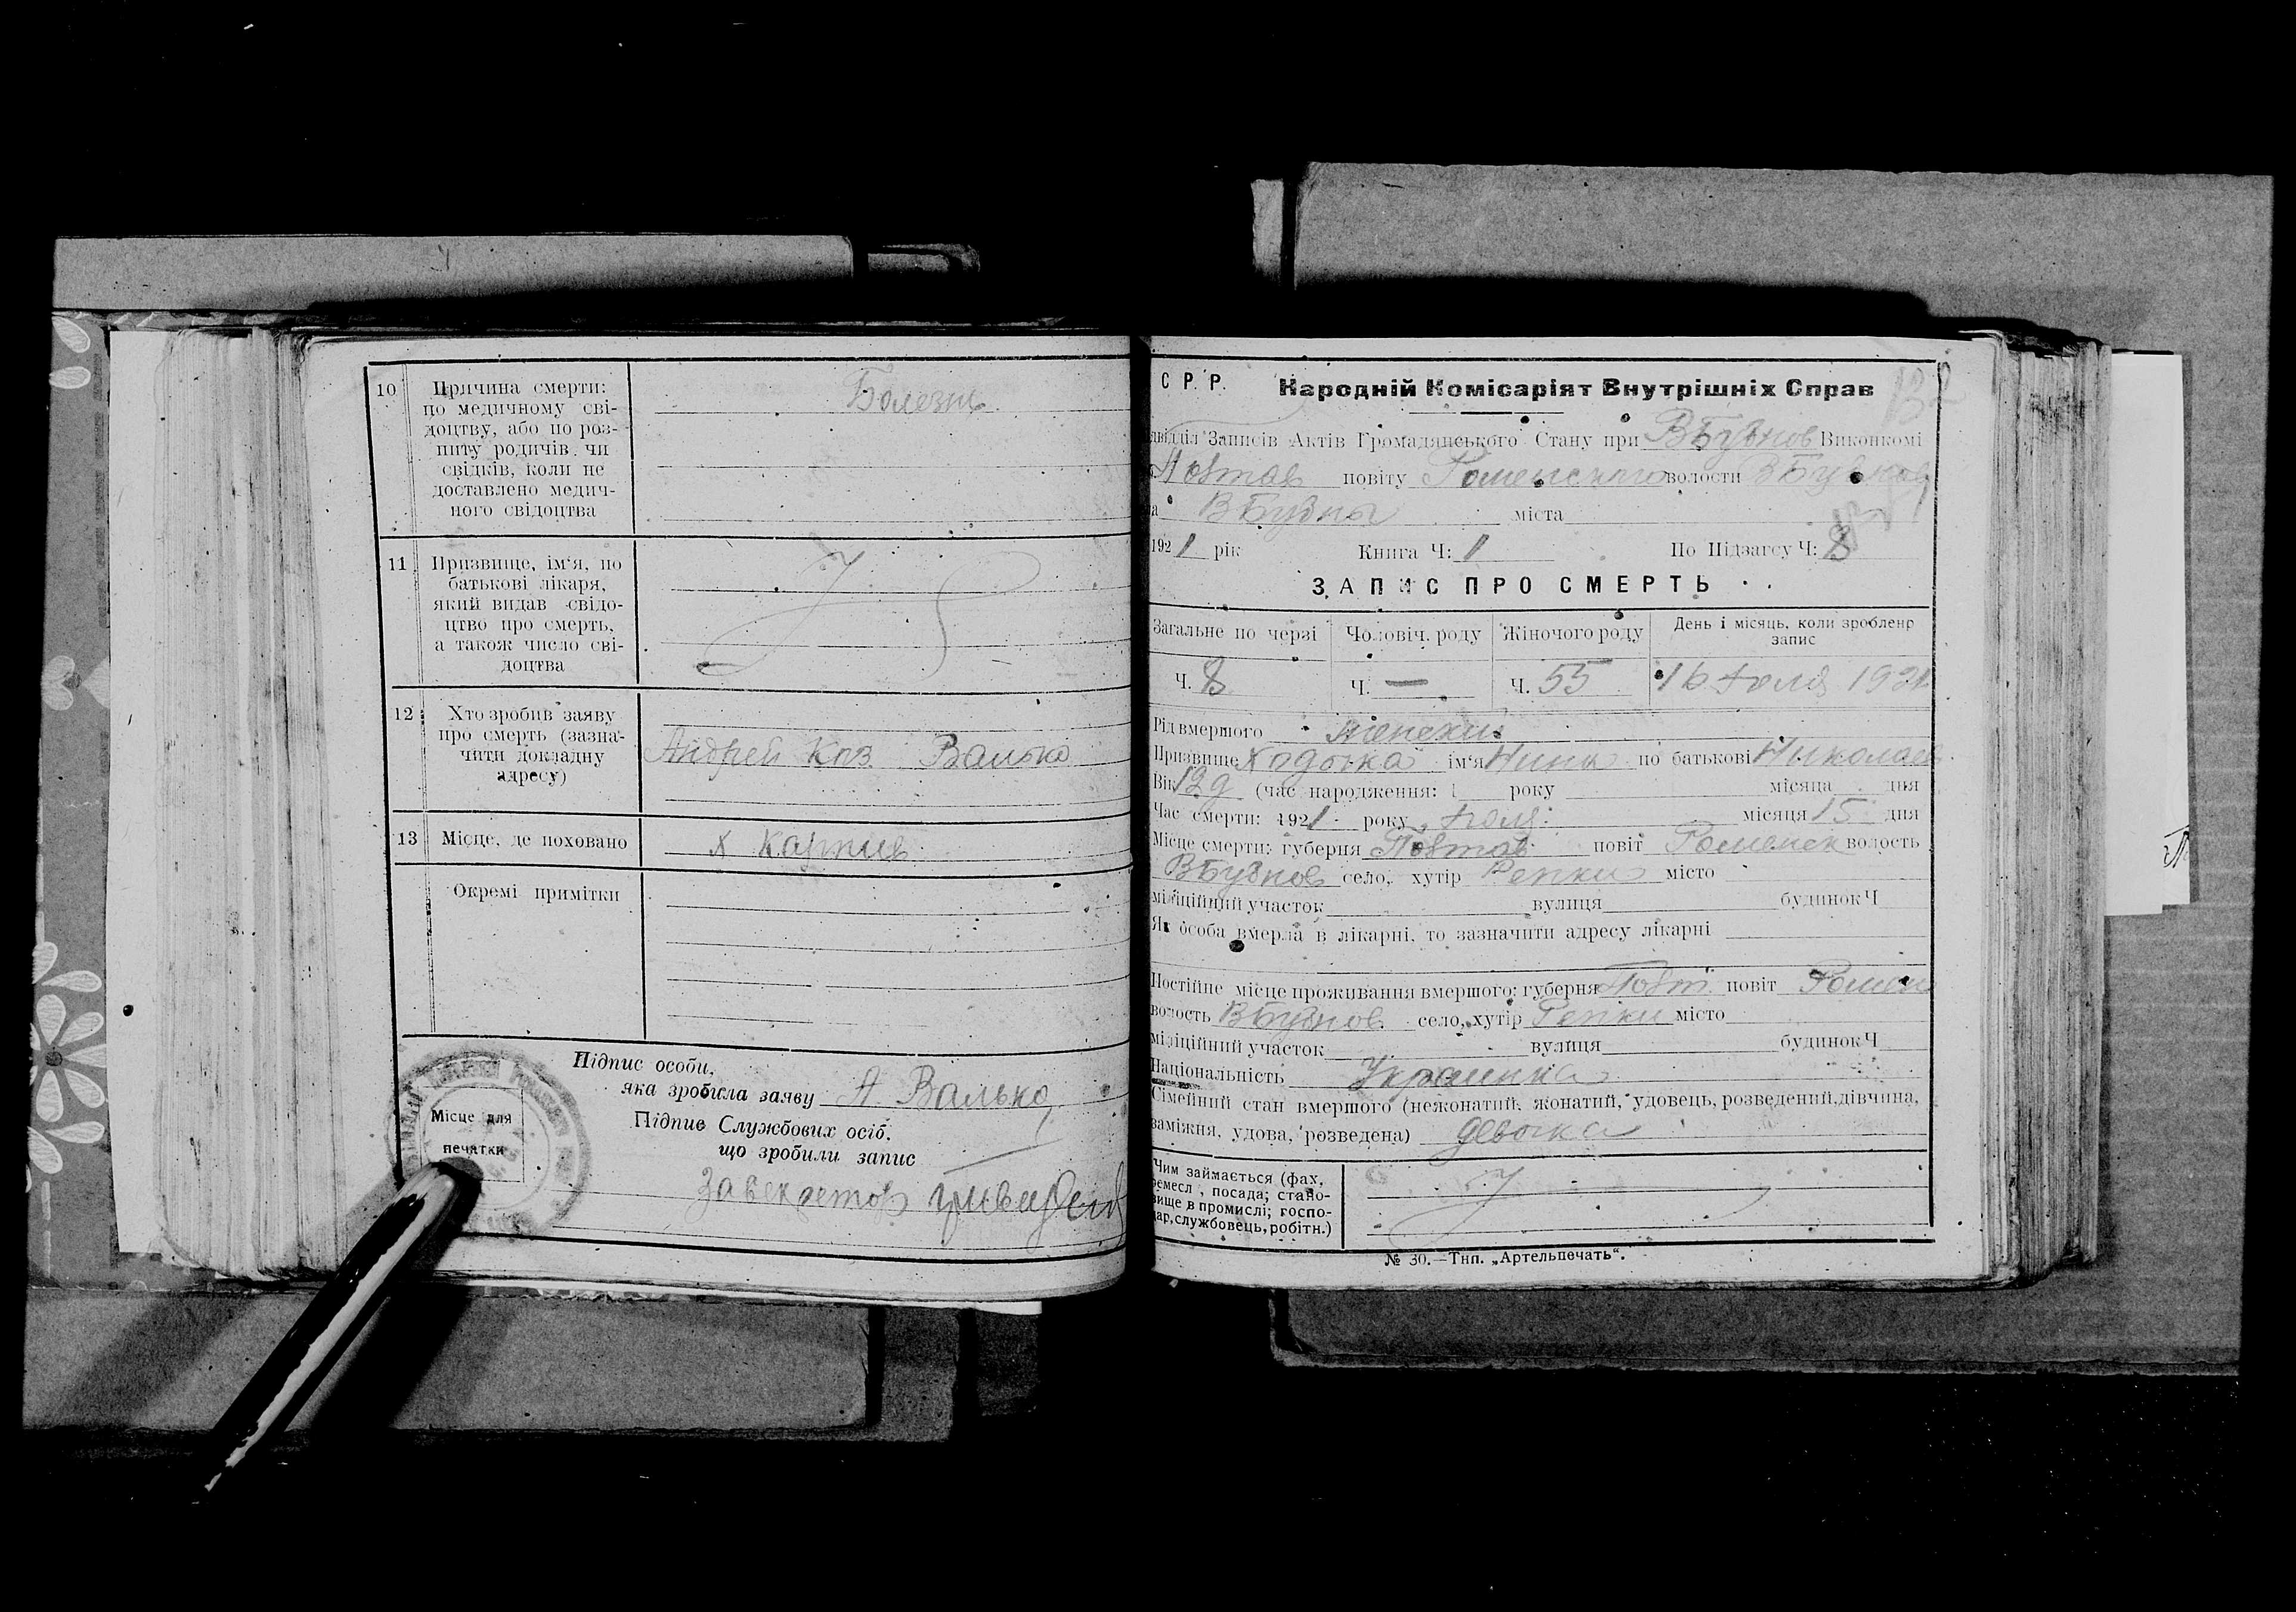 10 Причина смерти:
по медичному сві-
доцтву, або по роз-
питу родичів чи
свідків, коли не
доставлено медич-
ного свідоцтва
Болезнь
11 Призвище, ім'я, по
батькові лікаря,
який видав свідо-
цтво про смерть,
а також число сві-
доцтва
12 Хто зробив заяву
про смерть (зазна-
чити докладну
адресу)
Андрей Каз Валько
13 Місце, де поховано
х Карпив
Окремі примітки
Підпис особи,
яка зробила заяву А. Валько
Місце для
печатки
Підпис Службових осіб,
що зробили запис
Завсекретор
С Р. Р. Народній Комісаріят Внутрішніх Справ
132
двідділ Записів Актів Громадянського Стану при ВБубнов Виконкомі
Повтав повіту Роменского волости ВБубнов
а ВБубны міста
1921 рік Книга Ч: 1 По Підзагсу Ч: 8
ЗАПИС ПРО СМЕРТЬ
Загальне по черзі Чоловіч. роду Жіночого роду День і місяць, коли зроблено запис
Ч. 8 Ч. — Ч. 55 16 Июля 1921
Рід вмершого женский
Призвище Ходочка ім'я Нина по батькові Николаев
Вік 12 д (час народження: 1 року місяца дня
Час смерти: 1921 року Июля місяця 15 дня
Місце смерти: губерня Повтав повіт Роменск волость
ВБубнов село, хутір Репки місто
міліційний участок вулиця будинок Ч
Як особа вмерла в лікарні, то зазначити адресу лікарні
Постійне місце проживання вмершого: губерня Повт. повіт Ромен
волость ВБубнов. село, хутір Репки місто
міліційний участок вулиця будинок Ч
Національність Украинка
Сімейний стан вмершого (нежонатий, жонатий, удовець, розведений, дівчина,
заміжня, удова, розведена) девочка
Чим займається (фах,
ремесл, посада; стано-
вище в промислі; госпо-
дар, службовець, робітн.)
№ 30.—Тип. „Артельпечать".